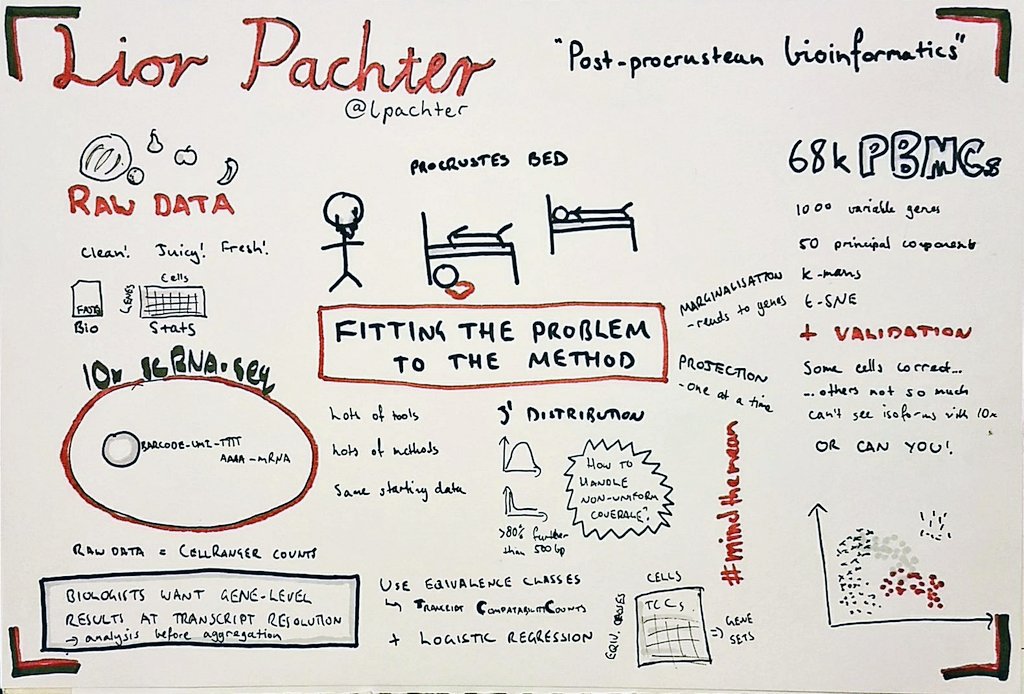 Lior Pachter
@lpachter
"Post-procrustean bioinformatics"
RAW DATA
Clean! Juicy! Fresh!
FASTQ
Bio
Cells
GENES
Stats
10x scRNA-seq
BARCODE-UMI-TTTT
AAAA-mRNA
RAW DATA = CELLRANGER COUNTS
BIOLOGISTS WANT GENE-LEVEL
RESULTS AT TRANSCRIPT RESOLUTION
→ analysis before aggregation
PROCRUSTES BED
FITTING THE PROBLEM
TO THE METHOD
Lots of tools
Lots of methods
Same starting data
3' DISTRIBUTION
>80% further
than 500 bp
HOW TO
HANDLE
NON-UNIFORM
COVERAGE?
USE EQUIVALENCE CLASSES
↳ TRANSCRIPT COMPATABILITY COUNTS
+ LOGISTIC REGRESSION
CELLS
TCCs
⇒ GENE
SETS
MARGINALISATION
- reads to genes
PROJECTION
- one at a time
#mindthemean
68k PBMCs
1000 variable genes
50 principal components
k-means
t-SNE
+ VALIDATION
Some cells correct...
...others not so much
can't see isoforms with 10x
OR CAN YOU!